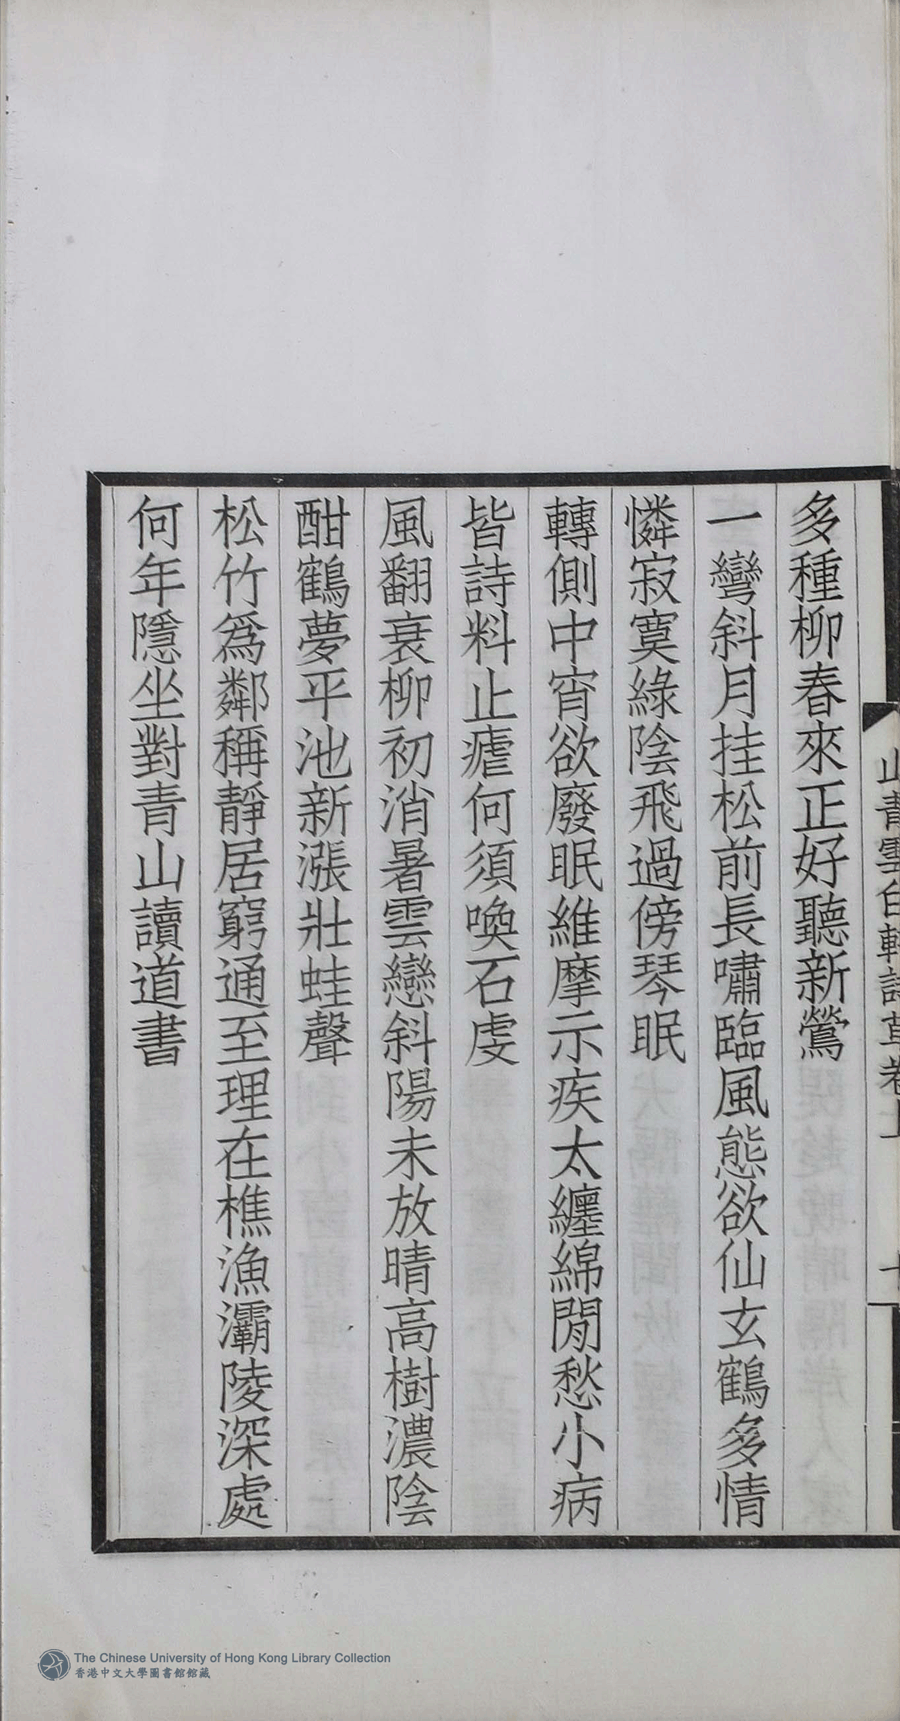 山青雲白軒詩草卷上
多種柳春來正好聽新鶯
一彎斜月挂松前長嘯臨風態欲仙玄鶴多情
憐寂寞綠陰飛過傍琴眠
轉側中宵欲廢眠維摩示疾太纏綿閒愁小病
皆詩料止瘧何須喚石虔
風翻衰柳初消暑雲戀斜陽未放晴高樹濃陰
酣鶴夢平池新漲壯蛙聲
松竹爲鄰稱靜居窮通至理在樵漁灞陵深處
何年隱坐對青山讀道書
The Chinese University of Hong Kong Library Collection
香港中文大學圖書館館藏